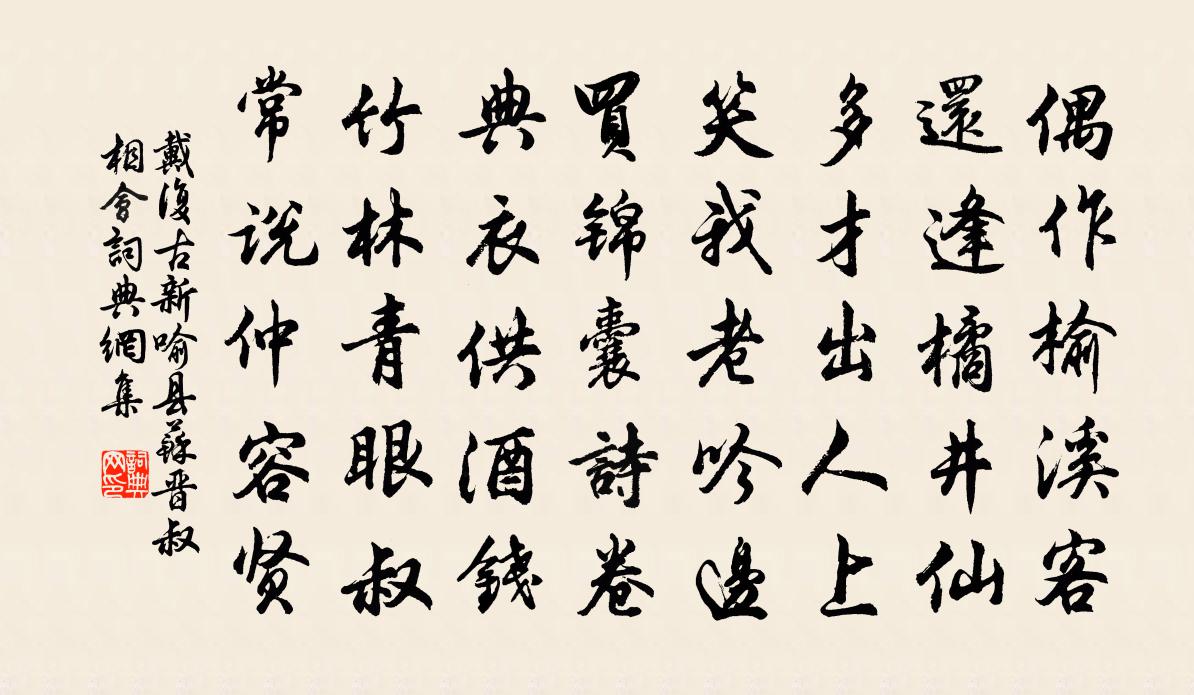 偶作榆溪客
還逢橘井仙
多才出人上
笑我老吟邊
買錦囊詩卷
典衣供酒錢
竹林青眼叔
常説仲容贤
戴復古新喻县蘇晋叔
相會詞典網集
詞典网印